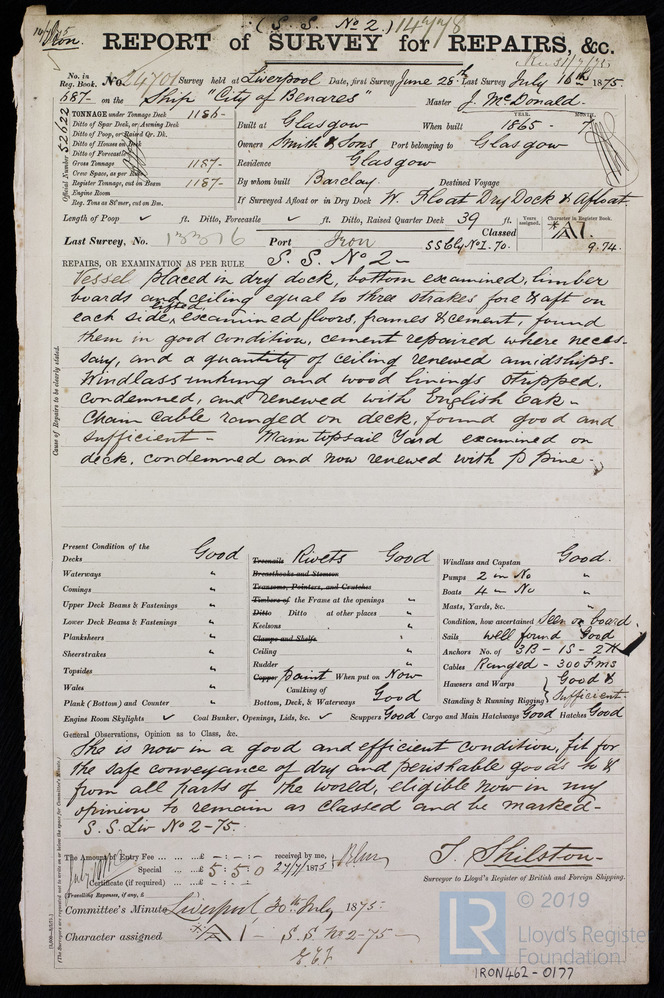 (S. S. No 2.) 14778
Iron.
REPORT of SURVEY for REPAIRS, &c.
No. in Reg. Book. No. 24701 Survey held at Liverpool Date, first Survey June 28th Last Survey July 16th 1875.
687- on the Ship "City of Benares" Master J. McDonald.
Official Number 52622
TONNAGE under Tonnage Deck 1186-
Ditto of Spar Deck, or Awning Deck
Ditto of Poop, or Raised Qr. Dk.
Ditto of Houses on Deck
Ditto of Forecastle
Gross Tonnage 1187-
Crew Space, as per Rule
Register Tonnage, cut on Beam 1187-
Engine Room
Reg. Tons as St'mer, cut on Bm.
YEAR. MONTH.
Built at Glasgow When built 1865- 7
Owners Smith & Sons Port belonging to Glasgow
Residence Glasgow
By whom built Barclay. Destined Voyage
If Surveyed Afloat or in Dry Dock W. Float Dry Dock & Afloat
Length of Poop ✓ ft. Ditto, Forecastle ✓ ft. Ditto, Raised Quarter Deck 39 ft.
Years assigned. Character in Register Book.
Last Survey, No. 13316 Port Iron Classed A1.
SS Gly No I. 70. 9.74.
REPAIRS, OR EXAMINATION AS PER RULE S. S. No 2-
Cause of Repairs to be clearly stated.
Vessel placed in dry dock, bottom examined, limber
boards and ceiling equal to three strakes fore & aft on
each side, lifted, examined floors, frames & cement, found
them in good condition, cement repaired where neces-
sary, and a quantity of ceiling renewed amidships.
Windlass unhung and wood linings stripped,
condemned, and renewed with English Oak-
Chain Cable ranged on deck, found good and
sufficient- Main topsail Yard examined on
deck, condemned and now renewed with P pine-
Present Condition of the
Decks Good
Waterways "
Comings "
Upper Deck Beams & Fastenings "
Lower Deck Beams & Fastenings "
Planksheers "
Sheerstrakes "
Topsides "
Wales "
Plank (Bottom) and Counter "
Engine Room Skylights ✓
Treenails Rivets Good
Breasthooks and Stemson
Transoms, Pointers, and Crutches
Timbers of the Frame at the openings "
Ditto Ditto at other places "
Keelsons "
Clamps and Shelfs
Ceiling "
Rudder "
Copper paint When put on Now
Caulking of Bottom, Deck, & Waterways Good
Coal Bunker, Openings, Lids, &c. ✓ Scuppers Good Cargo and Main Hatchways Good Hatches Good
Windlass and Capstan Good.
Pumps 2 in No "
Boats 4 in No "
Masts, Yards, &c. "
Condition, how ascertained Seen on board.
Sails well found Good
Anchors No. of 3B - 1S - 2K
Cables Ranged - 300 Fms
Hawsers and Warps } Good &
Standing & Running Rigging } Sufficient.
General Observations, Opinion as to Class, &c.
She is now in a good and efficient condition, fit for
the safe conveyance of dry and perishable goods to &
from all parts of the world, eligible now in my
opinion to remain as classed and be marked-
S.S. Liv No 2-75.
The Amount of Entry Fee ... ... ...£ - : - : - received by me,
Special ... ...£ 5 : 5 : 0 27/7/1875
Certificate (if required) ... ...£ - : - : -
(Travelling Expenses, if any, £
T. Shilston-
Surveyor to Lloyd's Register of British and Foreign Shipping.
Committee's Minute Liverpool 30th July 1875.
Character assigned A1- S.S. No 2-75-
(The Surveyors are requested not to write on or below the space for Committee's Minute.)
LR
© 2019
Lloyd's Register
Foundation
IRON462-0177